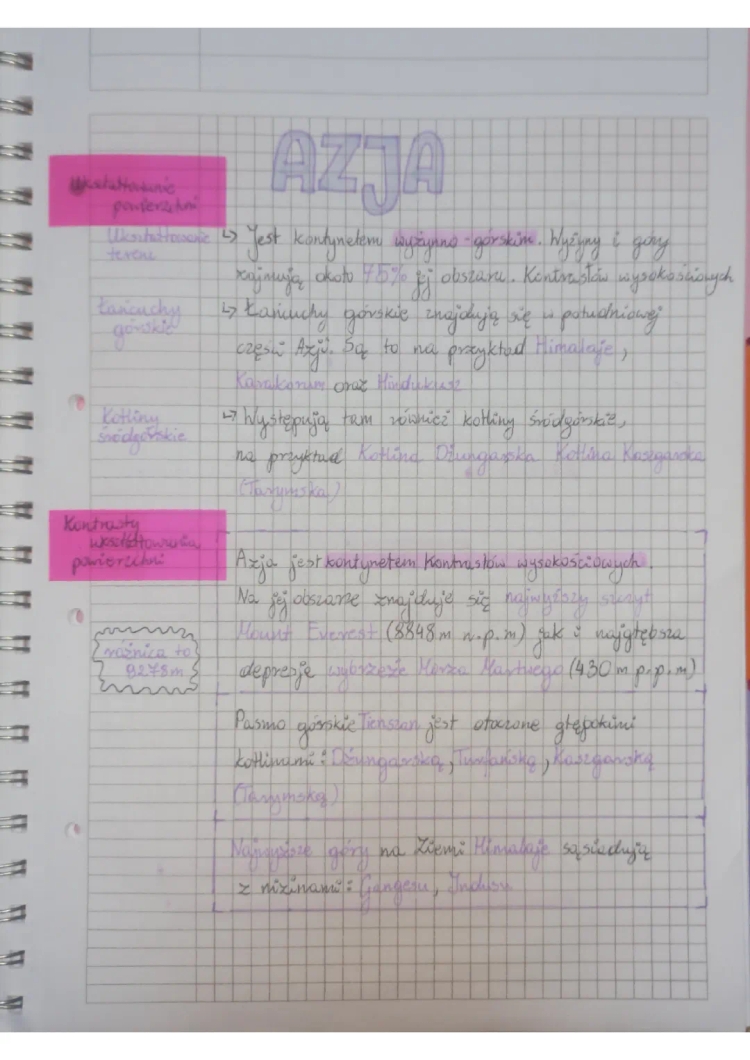 AZJA
Ukształtowanie
powierzchni
Ukształtowanie
terenu
↳ Jest kontynetem wyżynno-górskim. Wyżyny i góry
zajmują około 75% jej obszaru. Kontrastów wysokościowych
Łańcuchy
górskie
↳ Łańcuchy górskie znajdują się w południowej
części Azji. Są to na przykład Himalaje,
Karakorum oraz Hindukusz
Kotliny
śródgórskie
↳ Występują tam również kotliny śródgórskie,
na przykład Kotlina Dżungarska Kotlina Kaszgarska
(Tarymska)
Kontrasty
ukształtowania
powierzchni
Azja jest kontynetem kontrastów wysokościowych.
Na jej obszarze znajduje się najwyższy szczyt
Mount Everest (8848 m n.p.m) jak i najgłębsza
depresje wybrzeże Morza Martwego (430 m p.p.m)
różnica to
9278m
Pasmo górskie Tienszan jest otoczone głębokimi
kotlinami: Dżungarską, Turfańską, Kaszgarską
(Tarymską)
Najwyższe góry na Ziemi Himalaje sąsiadują
z nizinami: Gangesu, Indusu